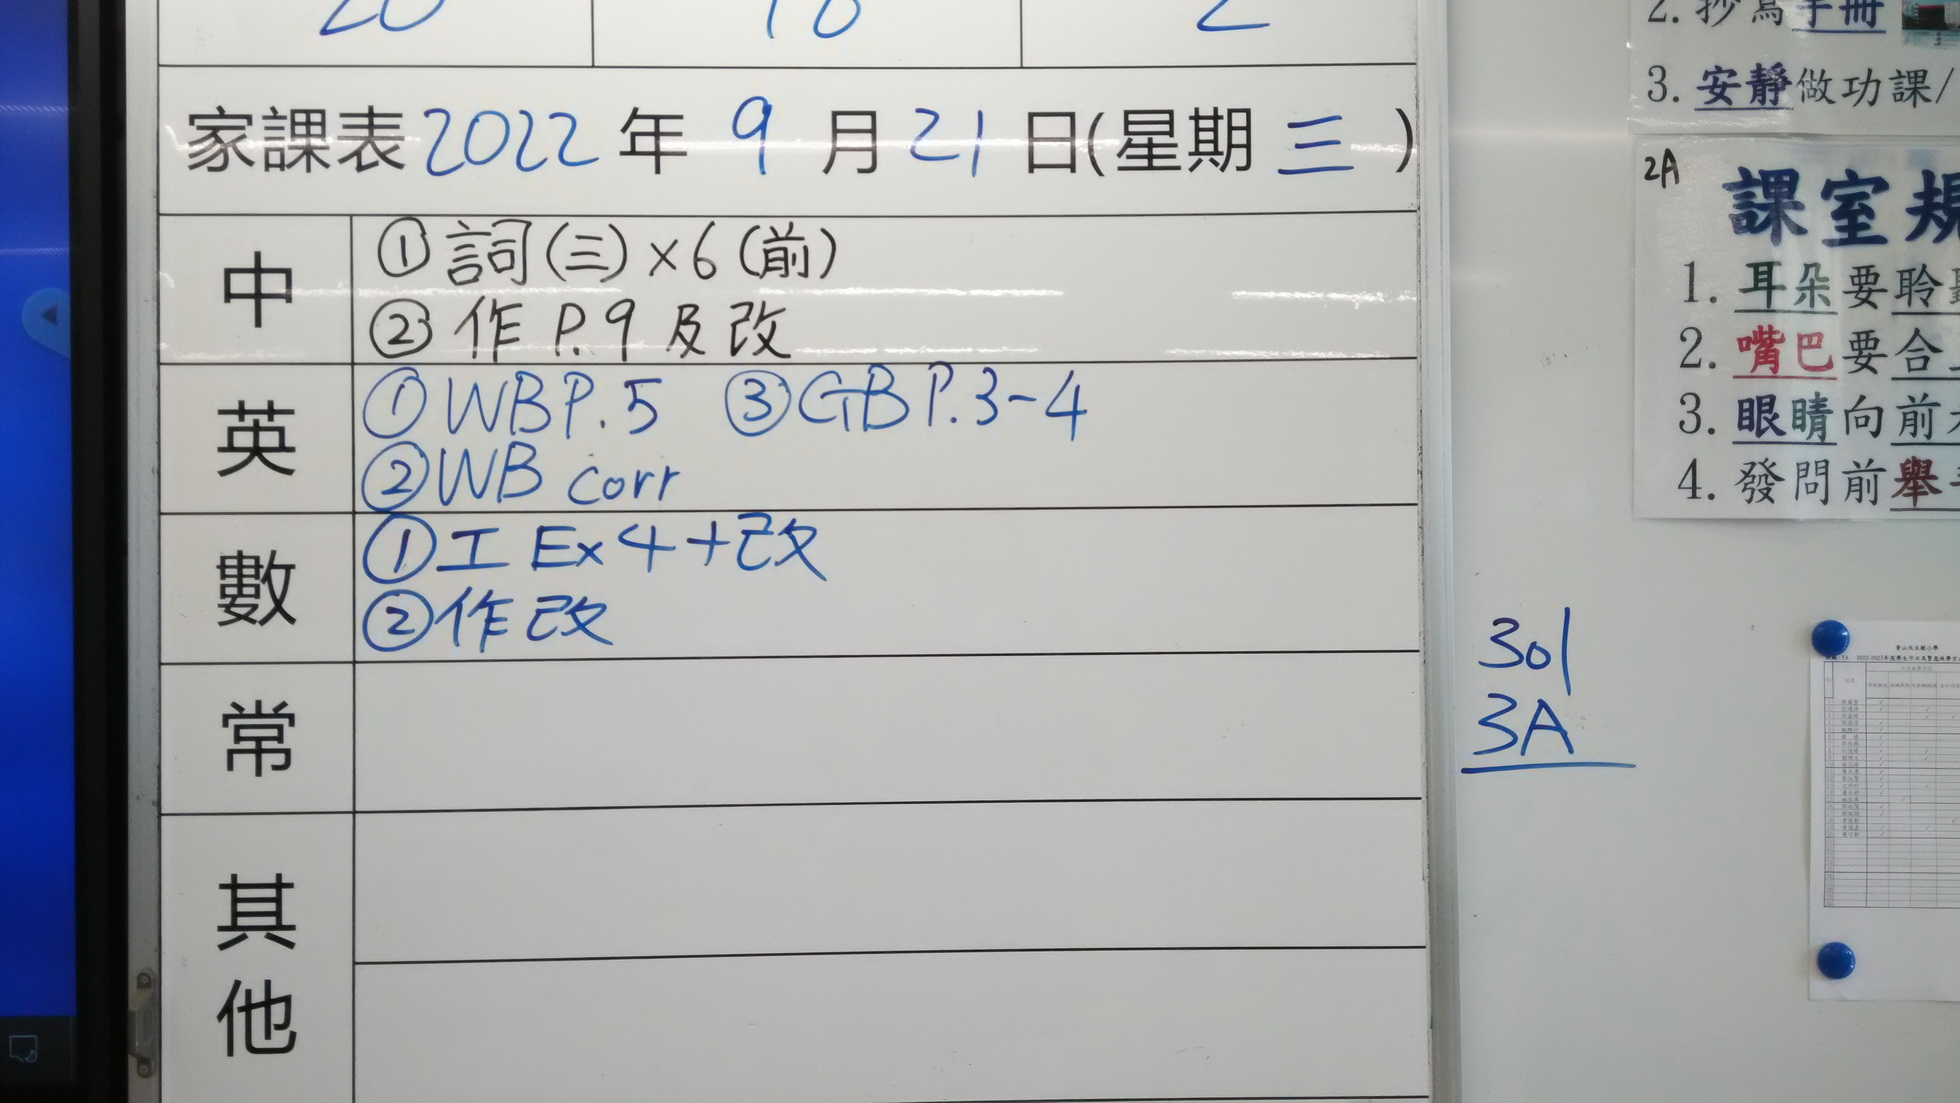 20 18 2
家課表2022年9月21日(星期三)
中
①詞(三)×6(前)
②作P.9及改
英
①WB P.5 ③GB P.3-4
②WB corr
數
①工Ex4+改
②作改
常
其他
2.抄寫手冊
3.安靜做功課/
2A
課室規
1.耳朵要聆聽
2.嘴巴要合
3.眼睛向前
4.發問前舉
301
3A